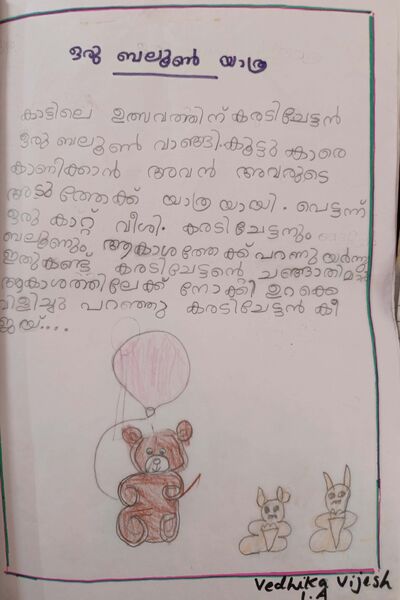 ഒരു ബലൂൺ യാത്ര
കാട്ടിലെ ഉത്സവത്തിന് കരടിചേട്ടൻ
ഒരു ബലൂൺ വാങ്ങി. കൂട്ടുകാരെ
കാണിക്കാൻ അവൻ അവരുടെ
അടുത്തേക്ക് യാത്രയായി. പെട്ടന്ന്
ഒരു കാറ്റ് വീശി. കരടിചേട്ടനും
ബലൂണും ആകാശത്തേക്ക് പറന്നുയർന്നു
ഇതുകണ്ട് കരടിചേട്ടന്റെ
ആകാശത്തിലേക്ക് നോക്കി ഉറക്കെ
വിളിച്ചു പറഞ്ഞു കരടിചേട്ടൻ കീ
ജയ്....
Vedhika Vijesh
1.A